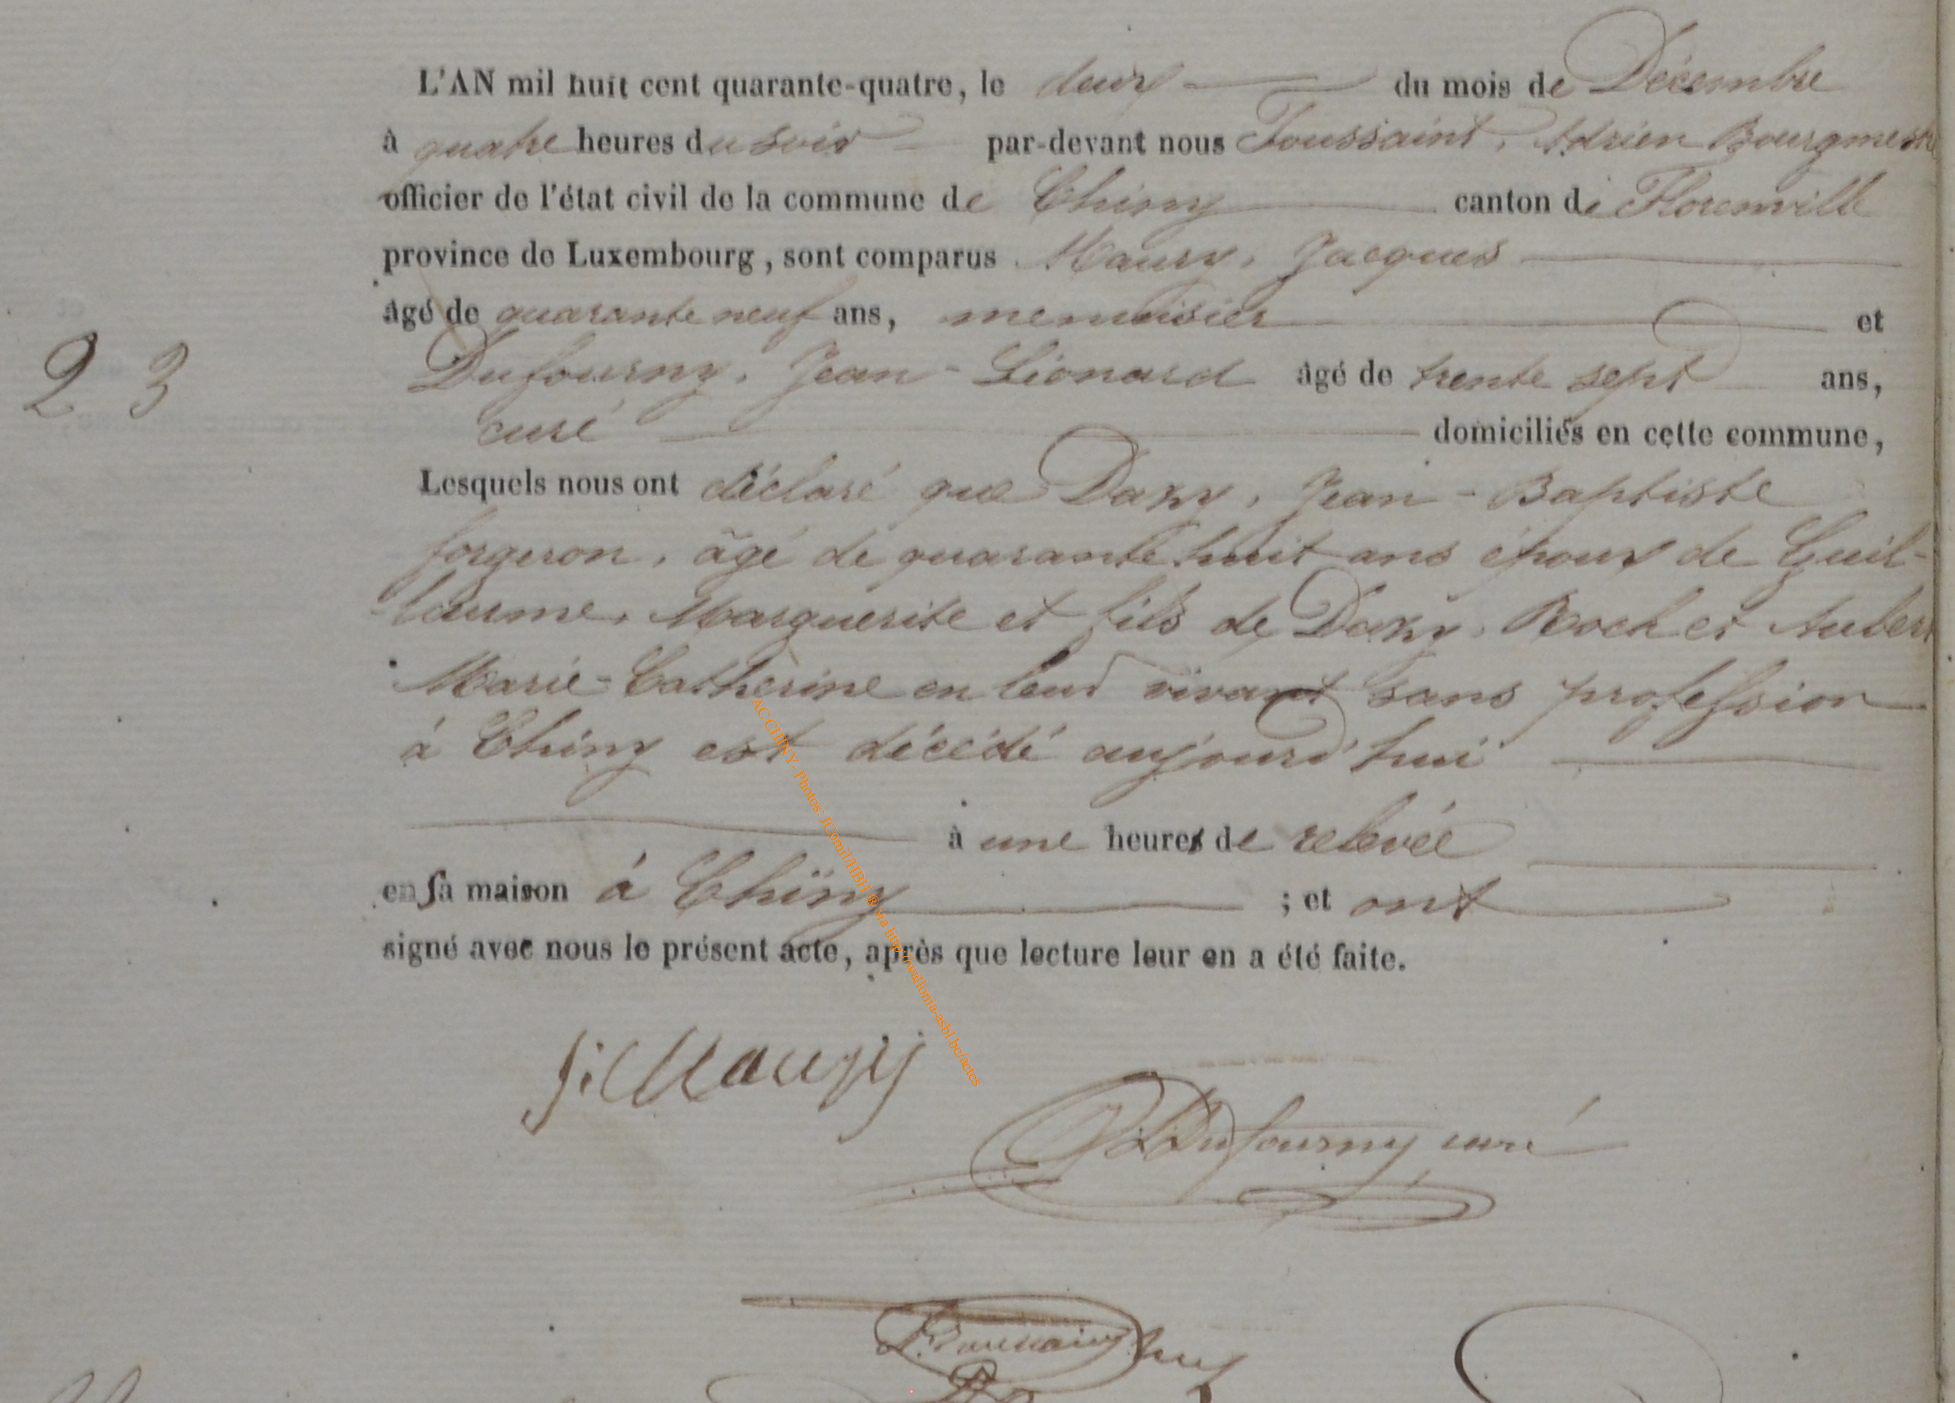 L'AN mil huit cent quarante-quatre, le deux du mois de Décembre
à quatre heures du soir par-devant nous Toussaint, Adrien Bourgmestre
officier de l'état civil de la commune de Chiny canton de Florenville
province de Luxembourg, sont comparus Maury, Jacques
âgé de quarante neuf ans, menuisier et
23
Dufourny, Jean-Léonard âgé de trente sept ans,
curé domiciliés en cette commune,
Lesquels nous ont déclaré que Daxy, Jean-Baptiste
forgeron, âgé de quarante huit ans époux de Guil-
laume, Marguerite et fils de Daxy, Roch et Aubert
Marie-Catherine en leur vivant sans profession
à Chiny est décédé aujourd'hui
à une heure de relevée
en sa maison à Chiny ; et ont
signé avec nous le présent acte, après que lecture leur en a été faite.
Maury
Dufourny curé
Toussaint